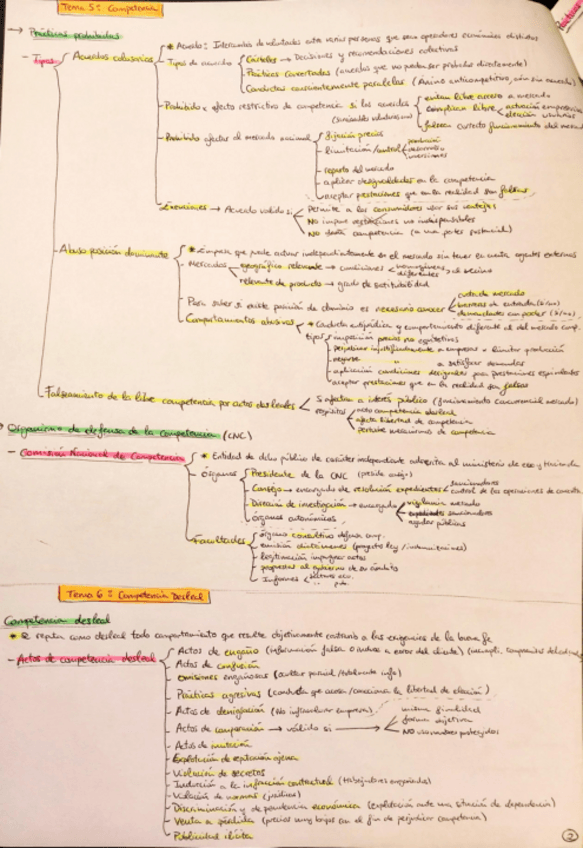 Tema 5: Competencia
→ Prácticas prohibidas
- Tipos
- Acuerdos colusorios
* Acuerdo: Intercambio de voluntades entre varias personas que sean operadores económicos distintos
- Tipos de acuerdo
Cárteles → Decisiones y recomendaciones colectivas
Prácticas concertadas (acuerdos que no pueden ser probados directamente)
Conductas conscientemente paralelas (Ánimo anticompetitivo, aún sin acuerdo)
- Prohibido x efecto restrictivo de competencia si los acuerdos
evitan libre acceso a mercado
complican libre
actuación empresarios
elección usuarios
falsean correcto funcionamiento del mercado
- Prohibido afectar al mercado nacional
fijación precios
- limitación/control
producción
desarrollo
inversiones
- reparto del mercado
- aplicar desigualdades en la competencia
- aceptar prestaciones que en la realidad son falsas
- Exenciones → Acuerdo válido si
Permite a los consumidores usar sus ventajas
No impone restricciones no indispensables
No daña competencia (a una parte sustancial)
- Abuso posición dominante
* Empresa que puede actuar independientemente en el mercado sin tener en cuenta agentes externos
- Mercados
geográfico relevante → condiciones
homogéneas
diferentes al vecino
relevante de producto → grado de sustituibilidad
- Para saber si existe posición de dominio es necesario conocer
cuota de mercado
barreras de entrada
demandantes con poder
- Comportamientos abusivos
* Conducta antijurídica y comportamiento diferente al del mercado comp.
tipos
imposición precios no equitativos
perjudicar injustificadamente a empresas o limitar producción
negarse a satisfacer demandas
aplicación condiciones desiguales para prestaciones equivalentes
aceptar prestaciones que en la realidad son falsas
- Falseamiento de la libre competencia por actos desleales
Si afectan a interés público (funcionamiento concurrencial mercado)
requisitos
acto competencia desleal
afecta libertad de competencia
perturbe mecanismo de competencia
→ Organismo de defensa de la competencia (CNC)
- Comisión Nacional de Competencia
* Entidad de dcho público de carácter independiente adscrita al ministerio de eco y Hacienda
- órganos
Presidente de la CNC
- Consejo → encargado de resolución expedientes
sancionadores
control de las operaciones de
- Dirección de investigación → encargada
vigilancia mercado
expedientes sancionadores
ayudas públicas
- órganos autonómicos
- Facultades
órgano consultivo defensa comp.
- emisión dictámenes
- legitimación impugnar actos
- propuestas al gobierno de su ámbito
- Informes
sectores eco.
Tema 6: Competencia Desleal
Competencia desleal
* Se reputa como desleal todo comportamiento que resulte objetivamente contrario a las exigencias de la buena fe
- Actos de competencia desleal
Actos de engaño (información falsa o induce a error del cliente)
- Actos de confusión
- omisiones engañosas (ocultar parcial/totalmente info)
- Prácticas agresivas (conducta que acosa/coacciona la libertad de elección)
- Actos de denigración
- Actos de comparación → válido si
misma finalidad
forma objetiva
NO
- Actos de imitación
- Explotación de reputación ajena
- Violación de secretos
- Inducción a la infracción contractual
- Violación de normas (jurídicas)
- Discriminación y dependencia económica (explotación ante una situación de dependencia)
- Venta a pérdida (precios muy bajos con el fin de perjudicar competencia)
- Publicidad ilícita
2